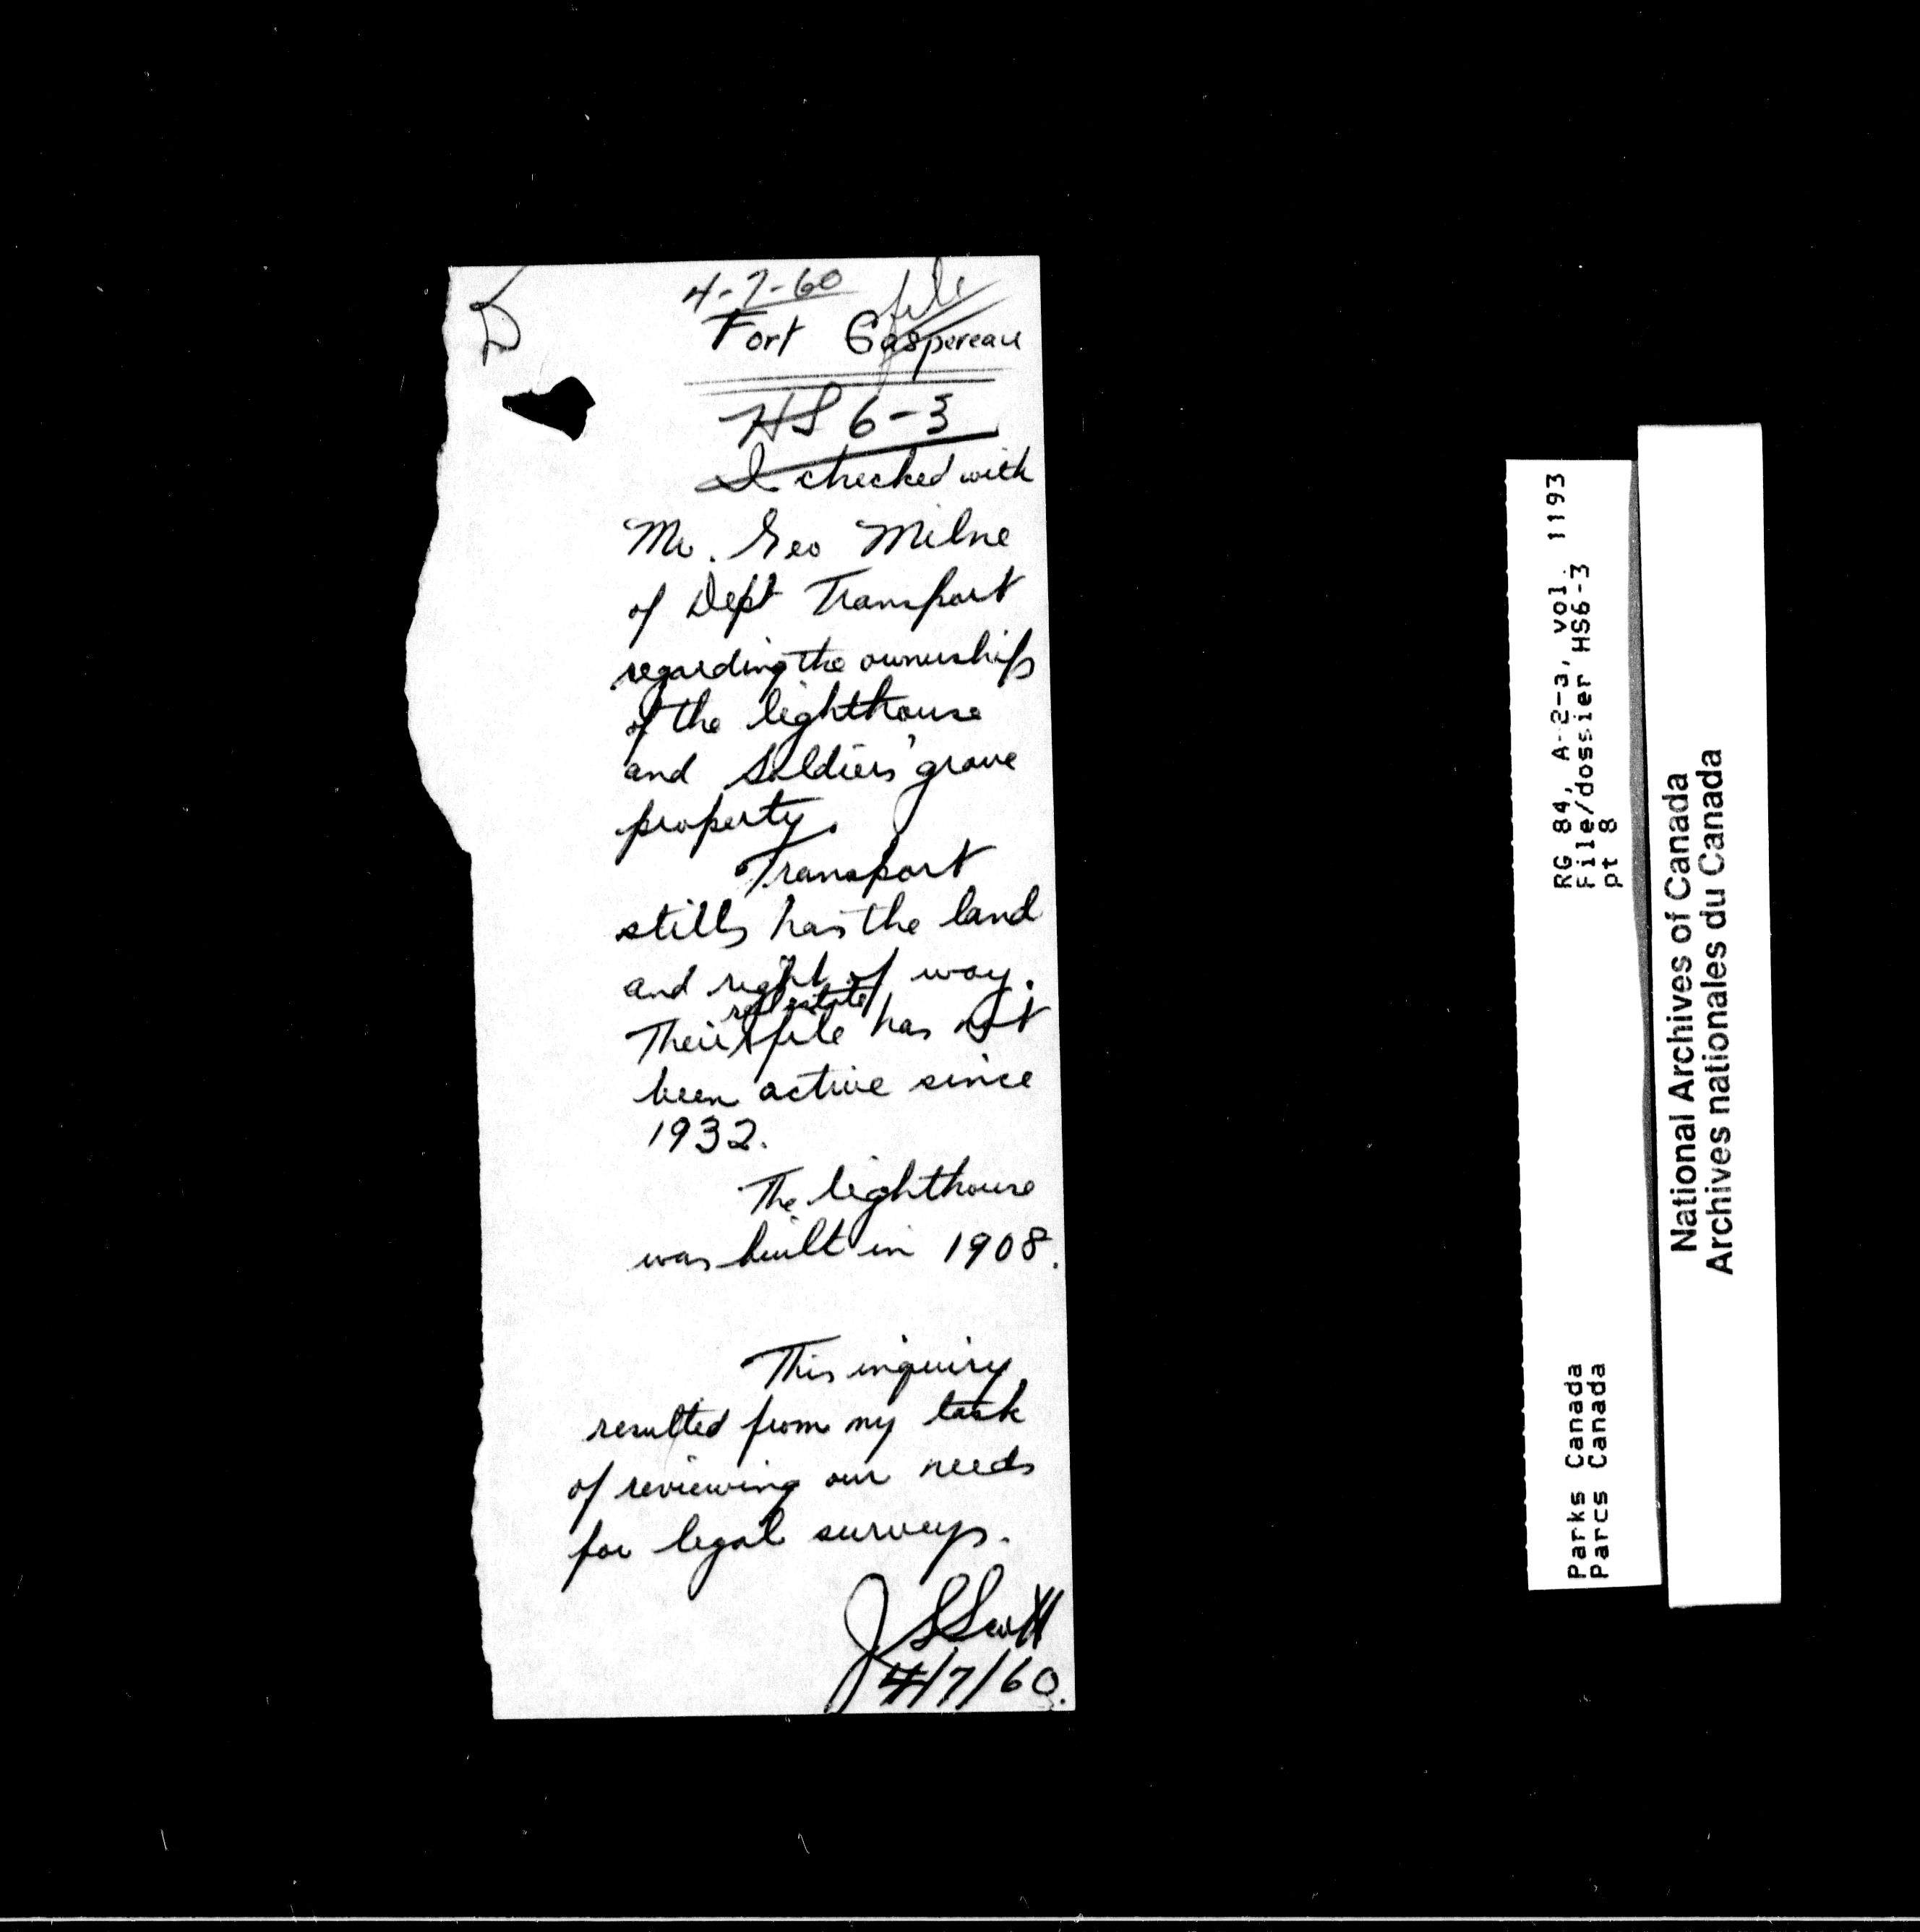 4-7-60
file
Fort Gaspereau
HS 6-3
I checked with
Mr. Geo Milne
of Dept Transport
regarding the ownership
of the lighthouse
and Soldiers' grave
property.
Transport
still has the land
and right of way.
real estate
Their file has not
been active since
1932.
The lighthouse
was built in 1908.
This inquiry
resulted from my task
of reviewing our needs
for legal surveys.
J S Scott
4/7/60.
RG 84, A-2-a, vol. 1193
File/dossier HS6-3
pt 8
Parks Canada
Parcs Canada
National Archives of Canada
Archives nationales du Canada